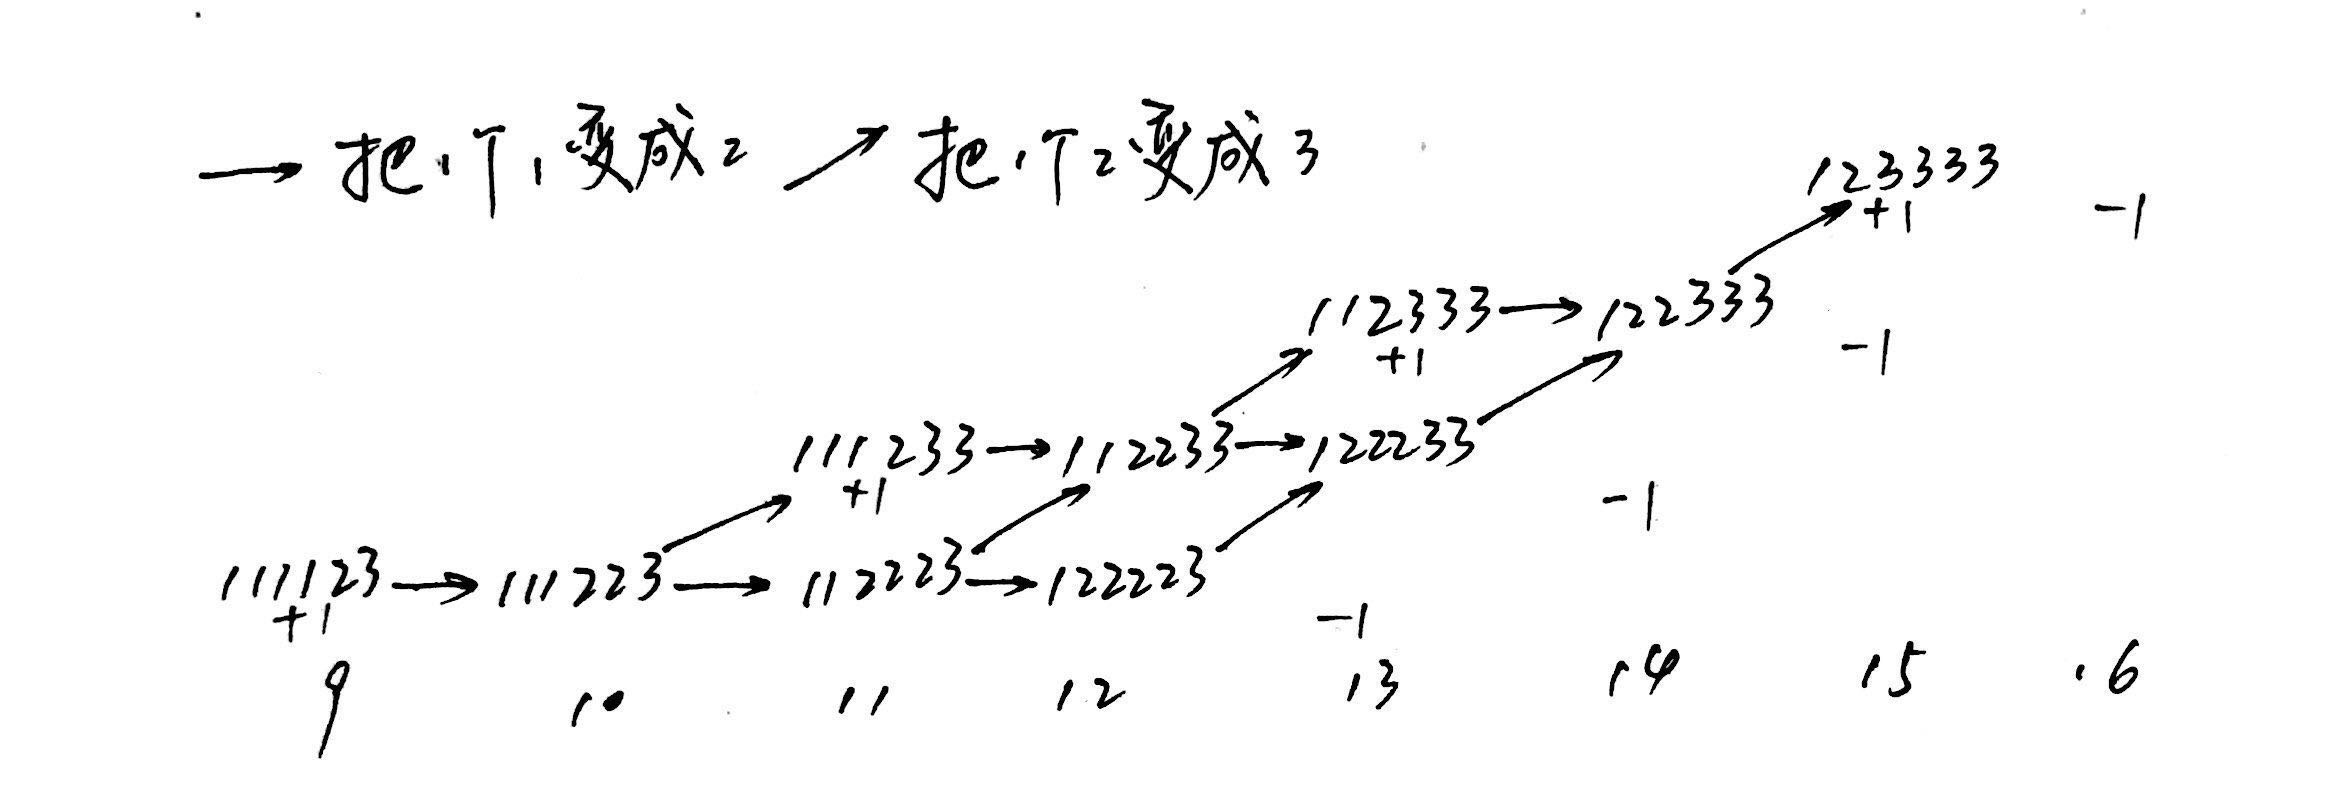 → 把1个1变成2 ↗ 把1个2变成3
123333
+1 -1
112333 → 122333
+1 -1
111233 → 112233 → 122233
+1 -1
111123 → 111223 → 112223 → 122223
+1 -1
9 10 11 12 13 14 15 16